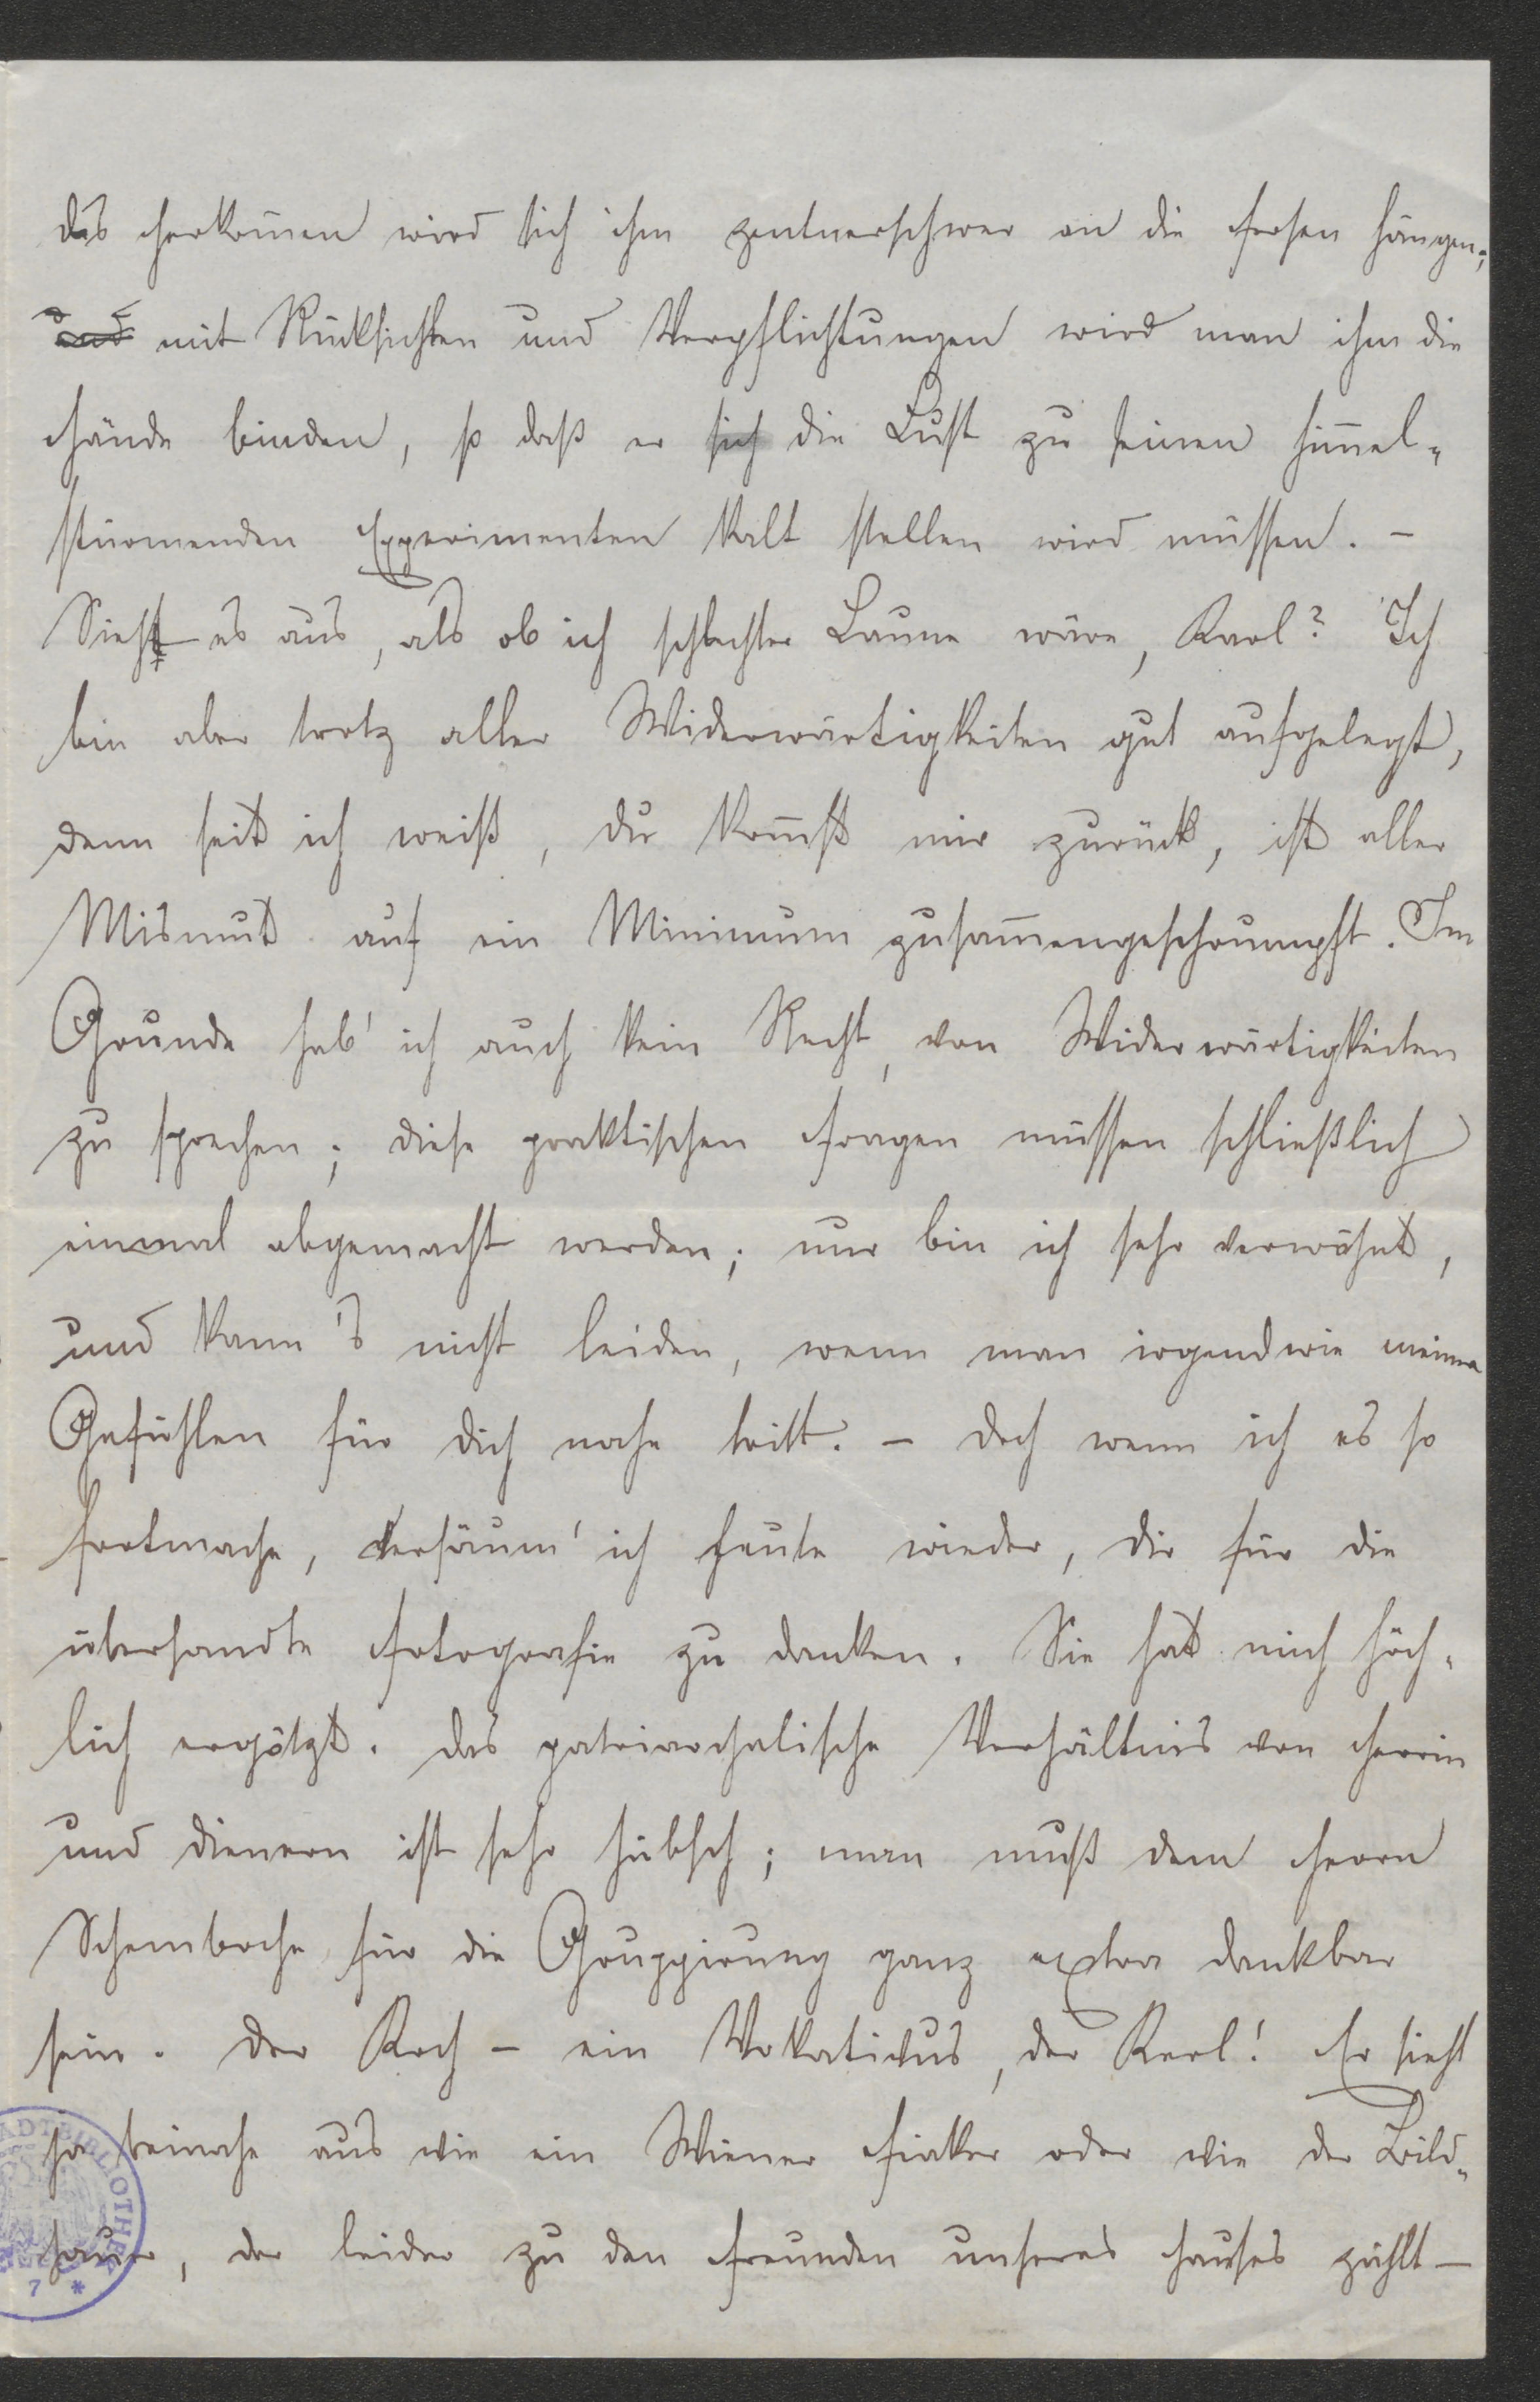 das Herkom̄en wird sich ihm zentnerschwer an die Fersen hängen;
und mit Rücksichten und Verpflichtungen wird man ihm die
Hände binden, so daß er sich die Lust zu seinen him̄el-
stürmenden Experimenten kalt stellen wird müssen. –
Sieht es aus, als ob ich schlechter Laune wäre, Karl? Ich
bin aber trotz aller Widerwärtigkeiten gut aufgelegt,
denn seit ich weiß, du kom̄st mir zurück, ist aller
Mismut auf ein Minimum zusam̄engeschrumpft. Im
Grunde hab' ich auch kein Recht, von Widerwärtigkeiten
zu sprechen; diese praktischen Fragen müssen schließlich
einmal abgemacht werden; nur bin ich sehr verwöhnt,
und kann's nicht leiden, wenn man irgendwie meinen
Gefühlen für dich nahe tritt. – Doch wenn ich es so
fortmache, versäum' ich heute wieder, dir für die
übersandte Fotografie zu danken. Sie hat mich höch-
lich ergötzt. Das patriarchalische Verhältnis von Herrin
und Dienern ist sehr hübsch; man muß dem Herrn
Schemboche für die Gruppirung ganz extra dankbar
sein. Der Koch – ein Vokativus, der Kerl! Er sieht
ja beinahe aus wie ein Wiener Fiaker oder wie der Bild-
hauer, der leider zu den Freunden unseres Hauses zählt –
ADTBIBLIOTHEK
7 *